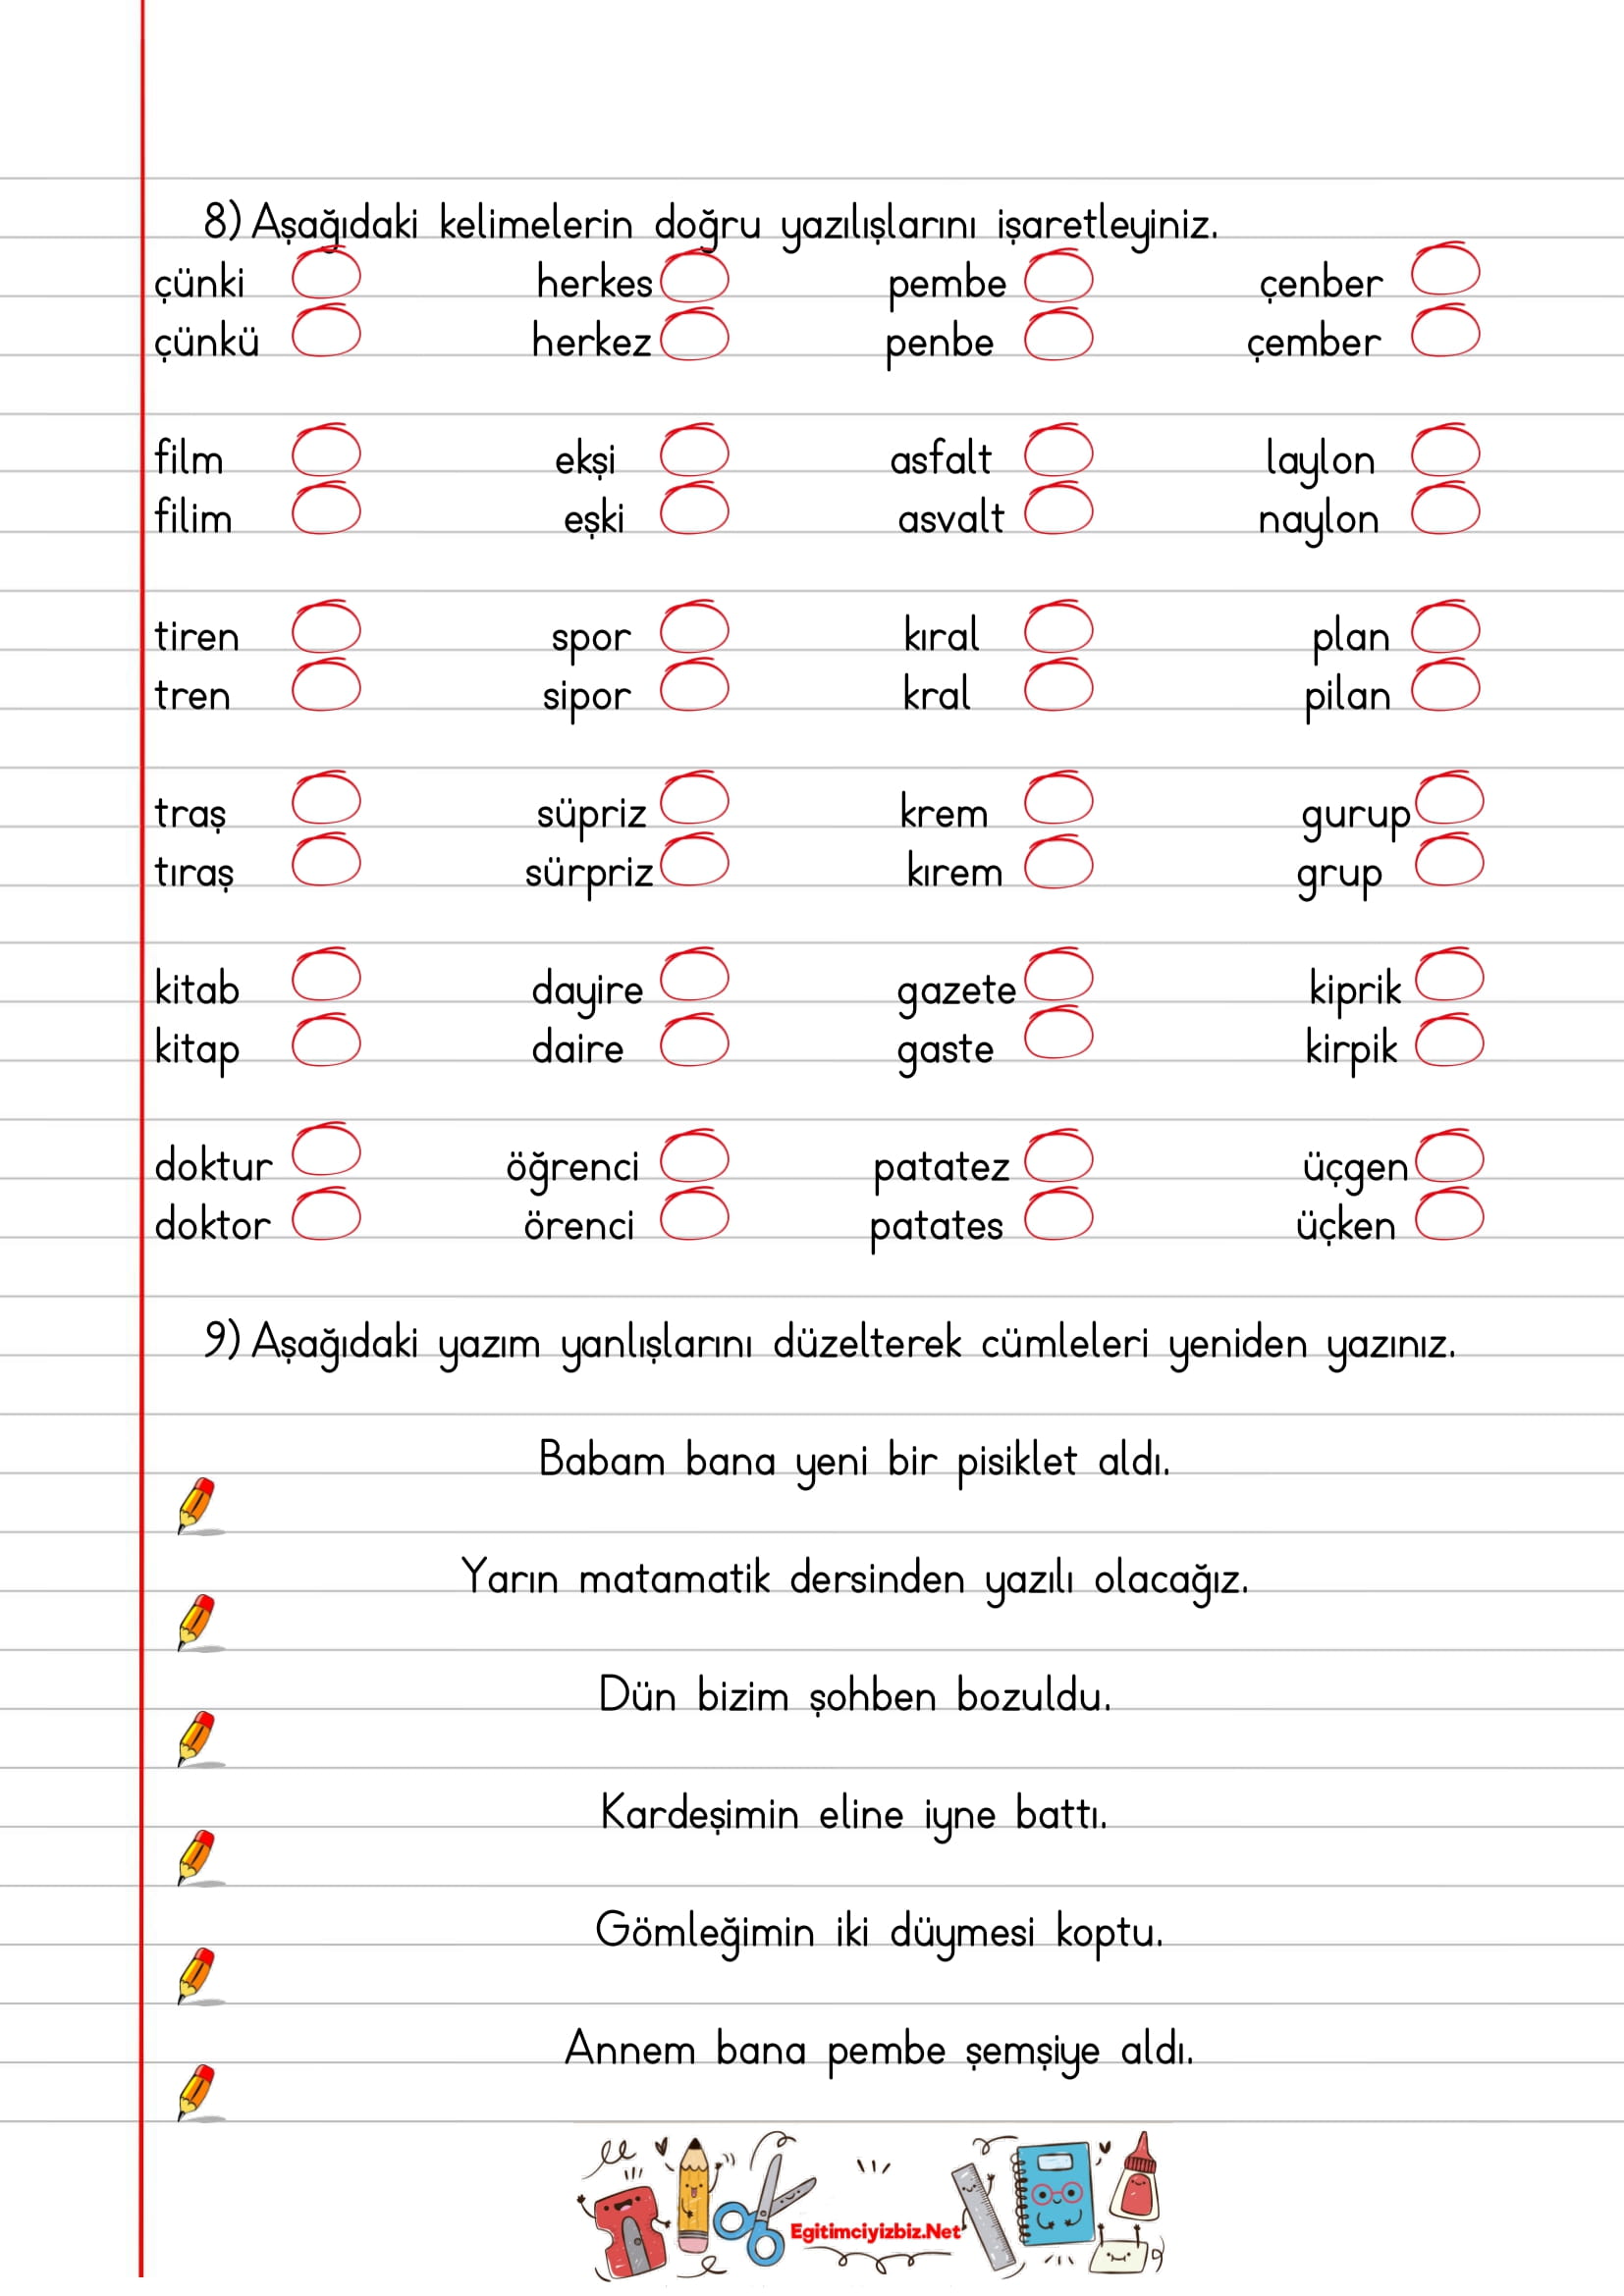 8) Aşağıdaki kelimelerin doğru yazılışlarını işaretleyiniz.
çünki herkes pembe çenber
çünkü herkez penbe çember
film ekşi asfalt laylon
filim eşki asvalt naylon
tiren spor kıral plan
tren sipor kral pilan
traş süpriz krem gurup
tıraş sürpriz kırem grup
kitab dayire gazete kiprik
kitap daire gaste kirpik
doktur öğrenci patatez üçgen
doktor örenci patates üçken
9) Aşağıdaki yazım yanlışlarını düzelterek cümleleri yeniden yazınız.
Babam bana yeni bir pisiklet aldı.
Yarın matamatik dersinden yazılı olacağız.
Dün bizim şohben bozuldu.
Kardeşimin eline iyne battı.
Gömleğimin iki düymesi koptu.
Annem bana pembe şemşiye aldı.
Egitimciyizbiz.Net